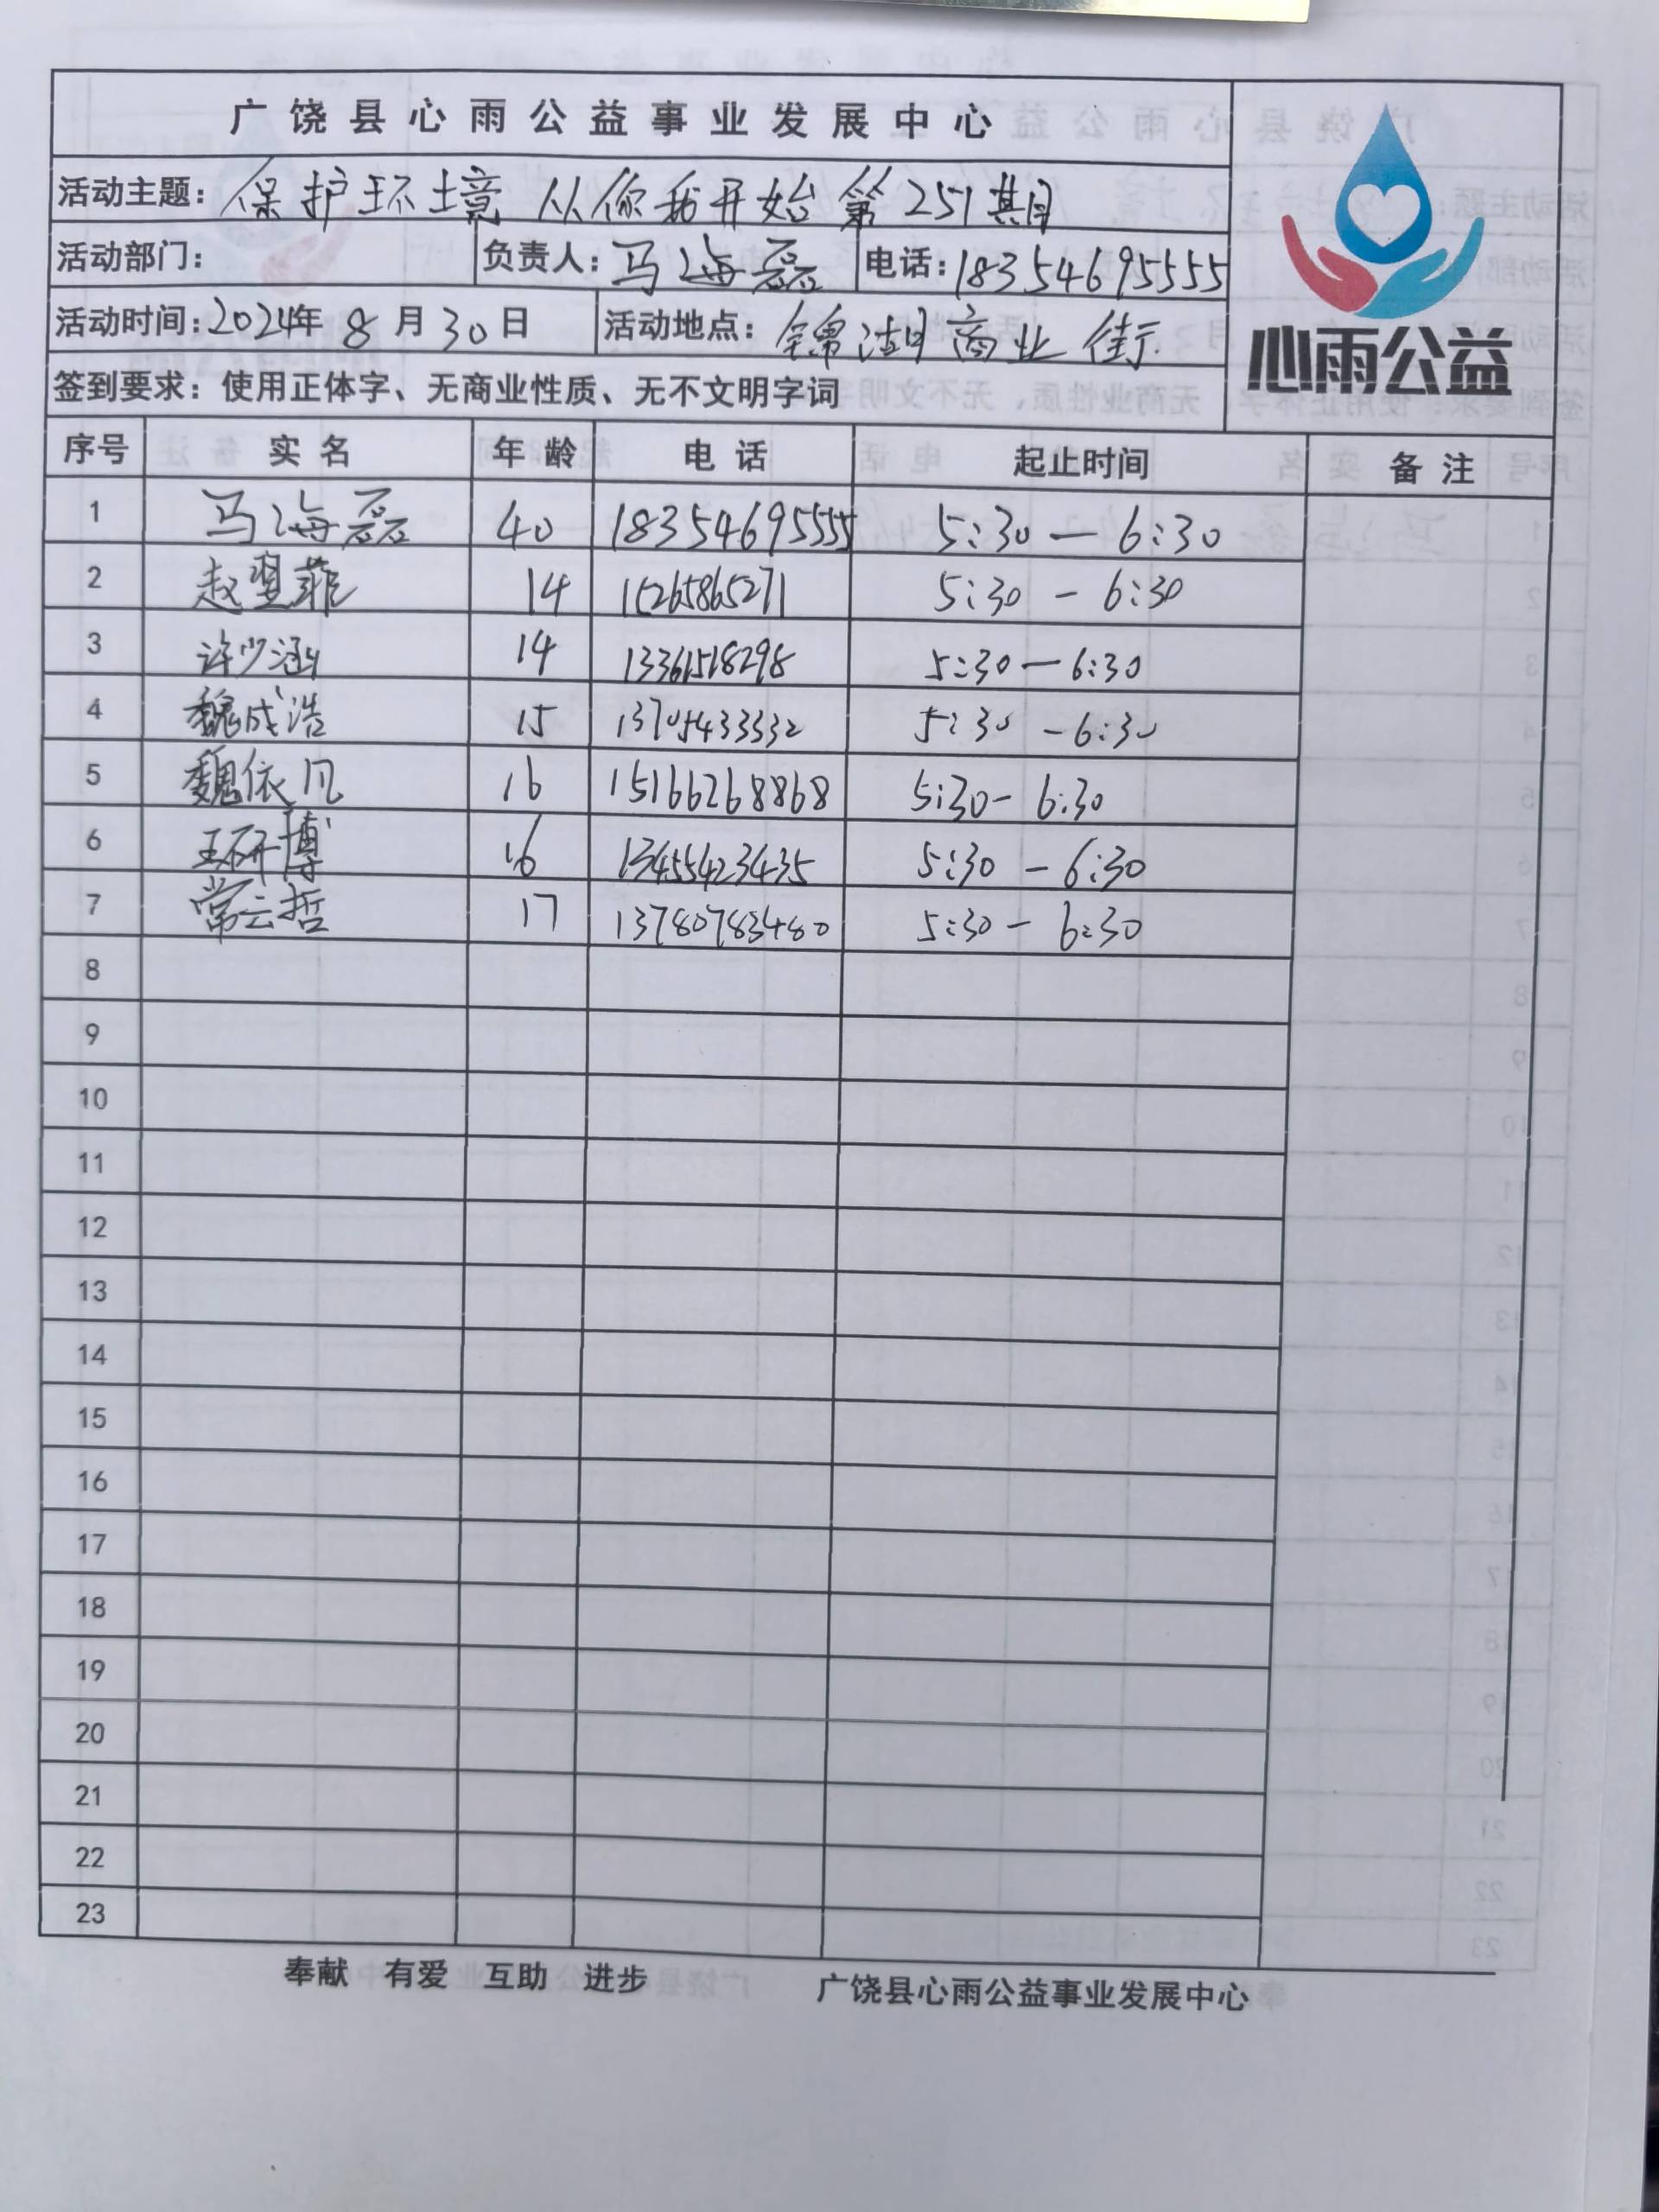 广饶县心雨公益事业发展中心
活动主题：保护环境 从你我开始 第251期
活动部门： 负责人：马海磊 电话：18354695555
活动时间：2024年8月30日 活动地点：锦湖商业街
心雨公益
签到要求：使用正体字、无商业性质、无不文明字词
序号 实名 年龄 电话 起止时间 备注
1 马海磊 40 18354695555 5:30—6:30
2 赵翌菲 14 15265865271 5:30-6:30
3 许少涵 14 13361518298 5:30—6:30
4 魏成浩 15 13705433332 5:30-6:30
5 魏依凡 16 15166268868 5:30-6:30
6 王研博 16 5:30-6:30
7 常云哲 17 5:30-6:30
8
9
10
11
12
13
14
15
16
17
18
19
20
21
22
23
奉献 有爱 互助 进步 广饶县心雨公益事业发展中心